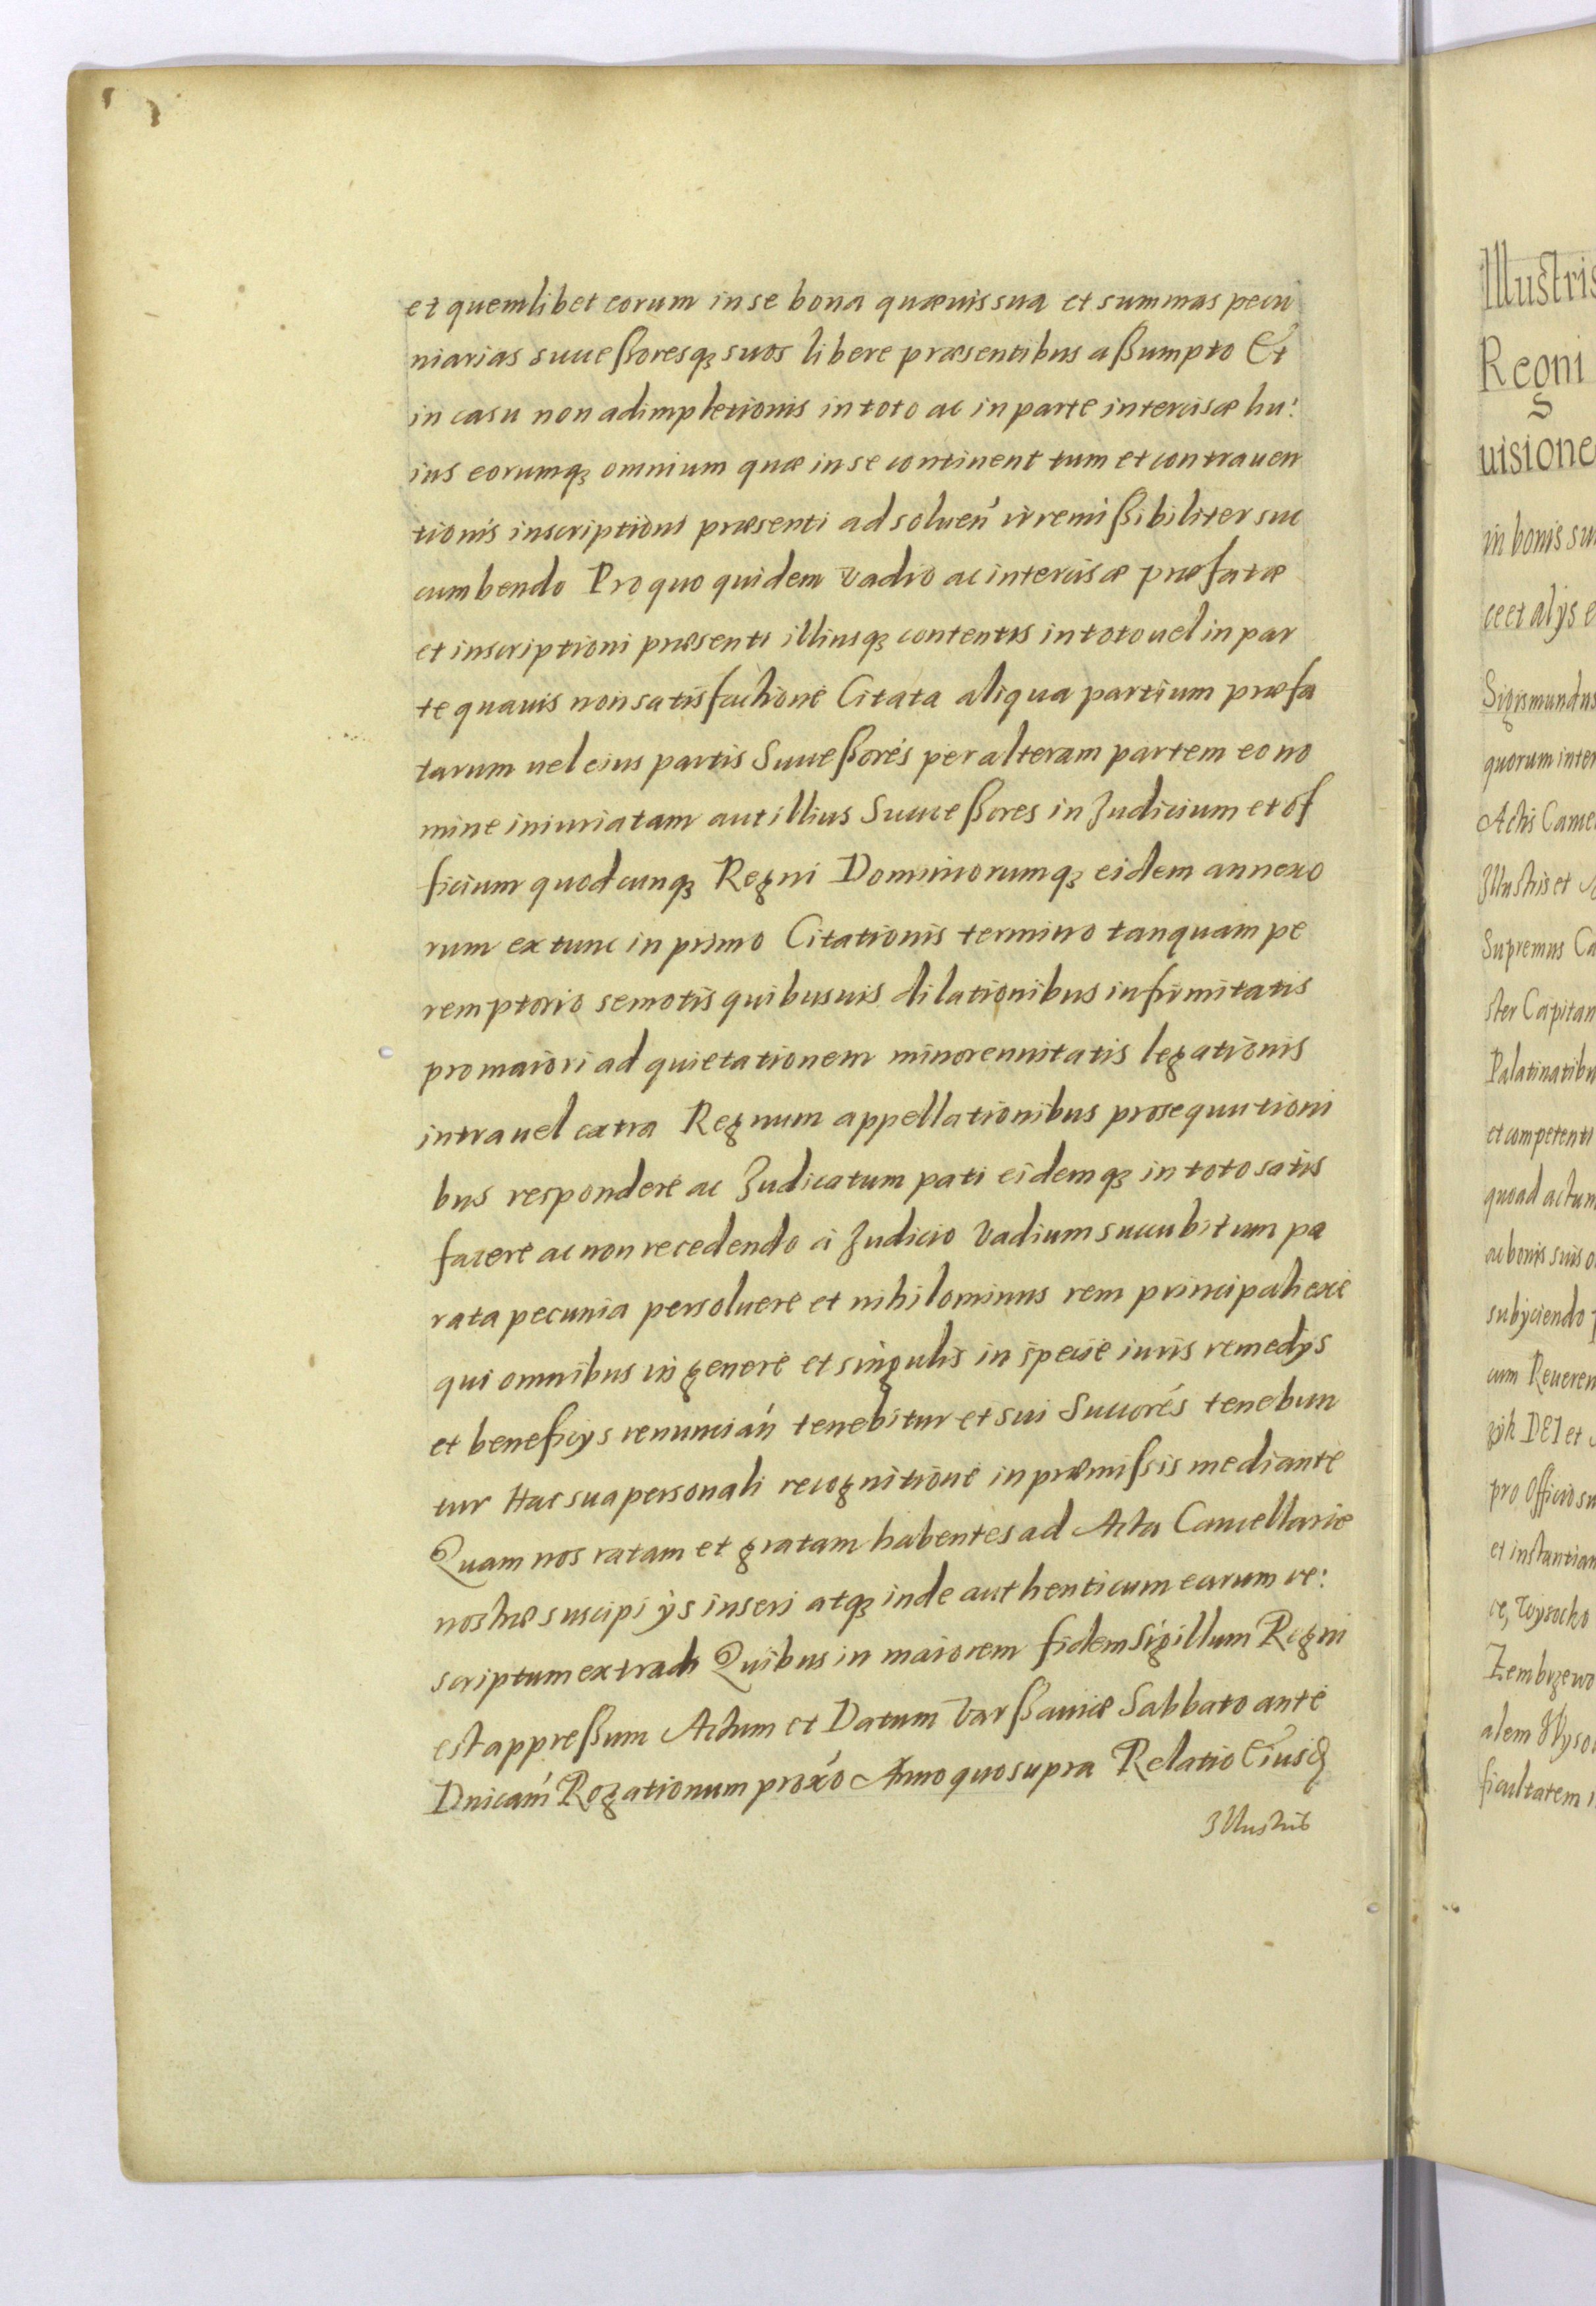 et quemlibet eorum in se bona quævis sua et summas pecu
niarias successoresq suos libere præsentibus assumpto Et
in casu non adimpletionis in toto ac in parte intercisæ hu:
ius eorumq omnium quæ in se continent tum et contrauen
tionis inscriptioni præsenti ad soluen irremissibiliter suc
cumbendo Pro quo quidem vadio ac intercisæ præfatæ
et inscriptioni præsenti illiusq contentis in toto uel in par
te quauis non satisfactione Citata aliqua partium præfa
tarum uel eius partis Successores per alteram partem eo no
mine iniuriatam aut illius Successores in Judicium et of
ficium quodcunq Regni Dominiorumq eidem annexo
rum ex tunc in primo Citationis termino tanquam pe
remptorio semotis quibusuis dilationibus infirmitatis
pro maiori ad quietationem minorennitatis legationis
intra uel extra Regnum appellationibus prosequutioni
bus respondere ac Judicatum pati eidemq in toto satis
facere ac non recedendo a Judicio Vadium succubitum pa
rata pecunia persoluere et nihilominus rem principali exe
qui omnibus in genere et singulis in specie iuris remedys
et beneficys renuncian tenebitur et sui Succores tenebun
tur Hac sua personali recognitione in præmissis mediante
Quam nos ratam et gratam habentes ad Acta Cancellarie
nostræ suscipi ys inseri atq inde authenticum earum re:
scriptum extradi Quibus in maiorem fidem Sigillum Regni
est appressum Actum et Datum Varssauiæ Sabbato ante
Dnicam Rogationum proxo Anno quo supra Relatio Eiusd
Illustris
Illustris
Regni
uisione
in bonis su
ce et alys e
Sigismundus
quorum inter
Actis Cance
Illustris et
Supremus Ca
ster Capitan
Palatinatibu
et competenti
quoad actum
ac bonis suis o
subyciendo
cum Reueren
DEI et
pro Officio su
et instantiam
ce, Wysocko
Zembrzewo
alem Wyso
ficultatem